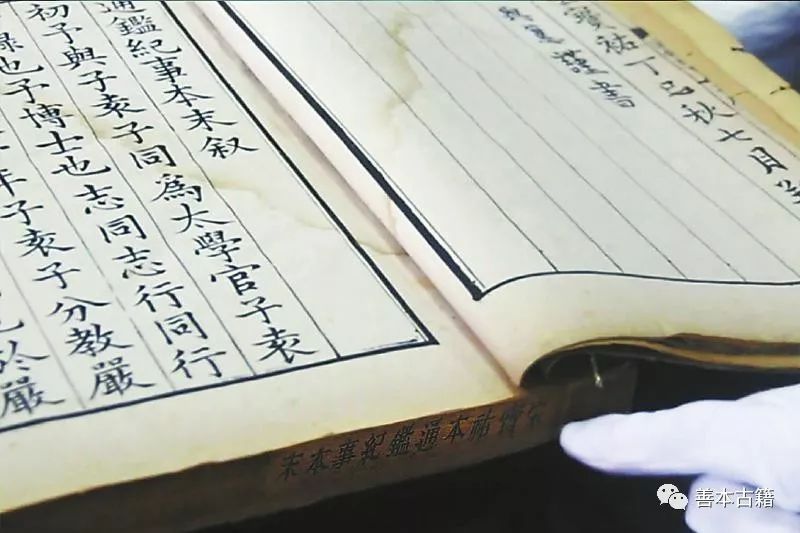 寶祐丁巳秋七月
謹書
通鑑紀事本末叙
初予與子袁子同爲太學官子袁
錄也予博士也志同志行同行
年子袁子分教嚴
於嚴
宋寶祐本通鑑紀事本末
善本古籍